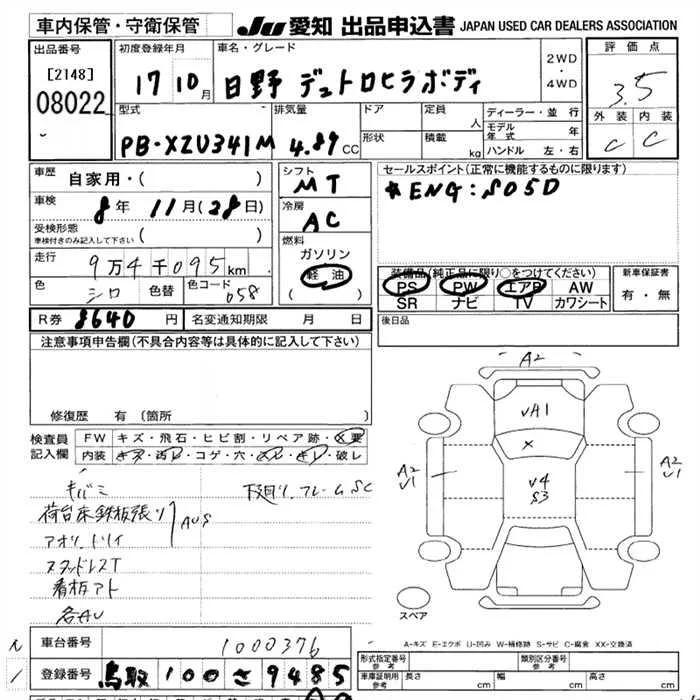 車内保管・守衛保管 JU 愛知 出品申込書 JAPAN USED CAR DEALERS ASSOCIATION
出品番号 初度登録年月 車名・グレード 2WD・4WD 評価点
[2148] 08022 17 10月 日野 デュトロヒラボディ 3.5
型式 排気量 ドア 定員 人 ディーラー・並行 外装 内装
PB-XZU341M 4.89CC 形状 積載 kg モデル年式 年 C C
ハンドル 左・右
車歴 自家用・( ) シフト MT セールスポイント(正常に機能するものに限ります)
車検 8年 11月(28日) 冷房 AC *ENG:S05D
受検形態 車検付きのみ記入して下さい ( ) 燃料 ガソリン
走行 9万4千095km 軽油 ( ) 装備品(純正品に限り○をつけてください) 新車保証書
色 シロ 色替 色コード 058 PS PW エアB AW 有・無
SR ナビ TV カワシート
R券 8640円 名変通知期限 月 日 後日品
注意事項申告欄(不具合内容等は具体的に記入して下さい)
修復歴 有(箇所 )
検査員記入欄 FW キズ・飛石・ヒビ割・リペア跡・X要
内装 キズ・汚レ・コゲ・穴・ヌレ・キレ・破レ
キバミ 下廻リ、フレームSC
荷台床鉄板張リ AUS
アオリ、トリイ
スタッドレスT
看板アト
各AU
A2
UA1
X
A2 U1 U4 S3 A2 U1
スペア
A-キズ E-エクボ U-凹み W-補修跡 S-サビ C-腐食 XX-交換済
車台番号 1000376
登録番号 鳥取 100 さ 9485
形式指定番号 参考 類別区分番号 参考
車庫証明用 参考 長さ cm 幅 cm 高さ cm